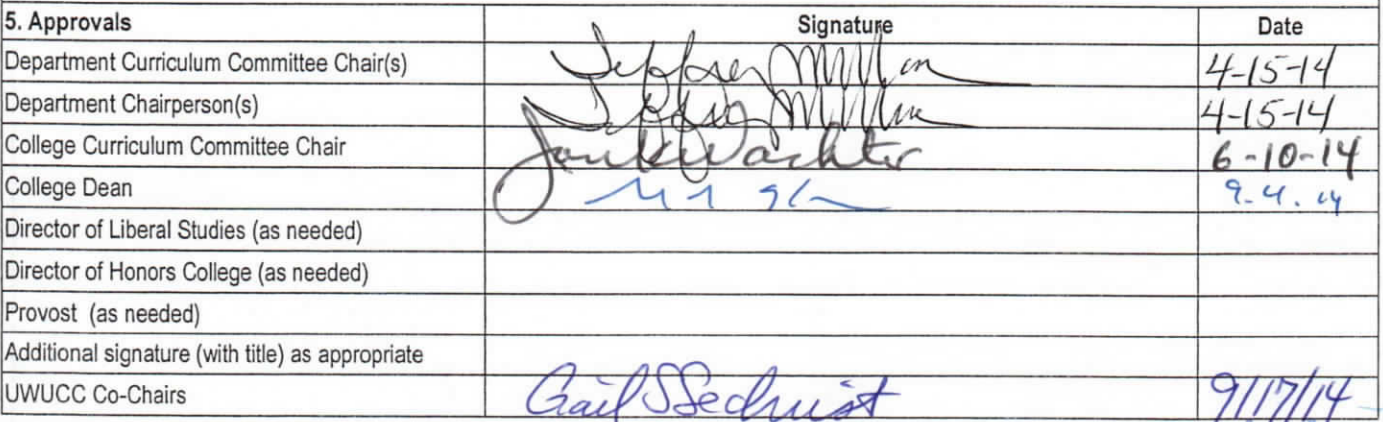 5. Approvals Signature Date
Department Curriculum Committee Chair(s) 4-15-14
Department Chairperson(s) 4-15-14
College Curriculum Committee Chair 6-10-14
College Dean 9.4.14
Director of Liberal Studies (as needed)
Director of Honors College (as needed)
Provost (as needed)
Additional signature (with title) as appropriate
UWUCC Co-Chairs Gail S Sechrist 9/17/14